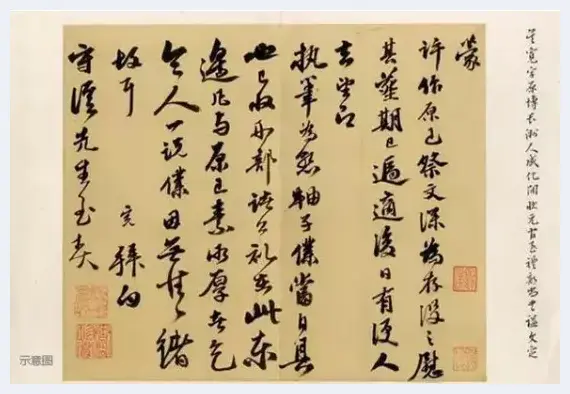 吴宽字原博长洲人成化间状元官至礼部尚书谥文定
蒙
许作原已祭文深为存没之慰
其葬期已逼适后日有便人
去望即
执笔为恳轴子仆当自具
也已收和部诸公礼在此东
边凡与原已素相厚者乞
令人一说仆因无情绪
故耳
宽拜白
守溪先生玉契
示意图